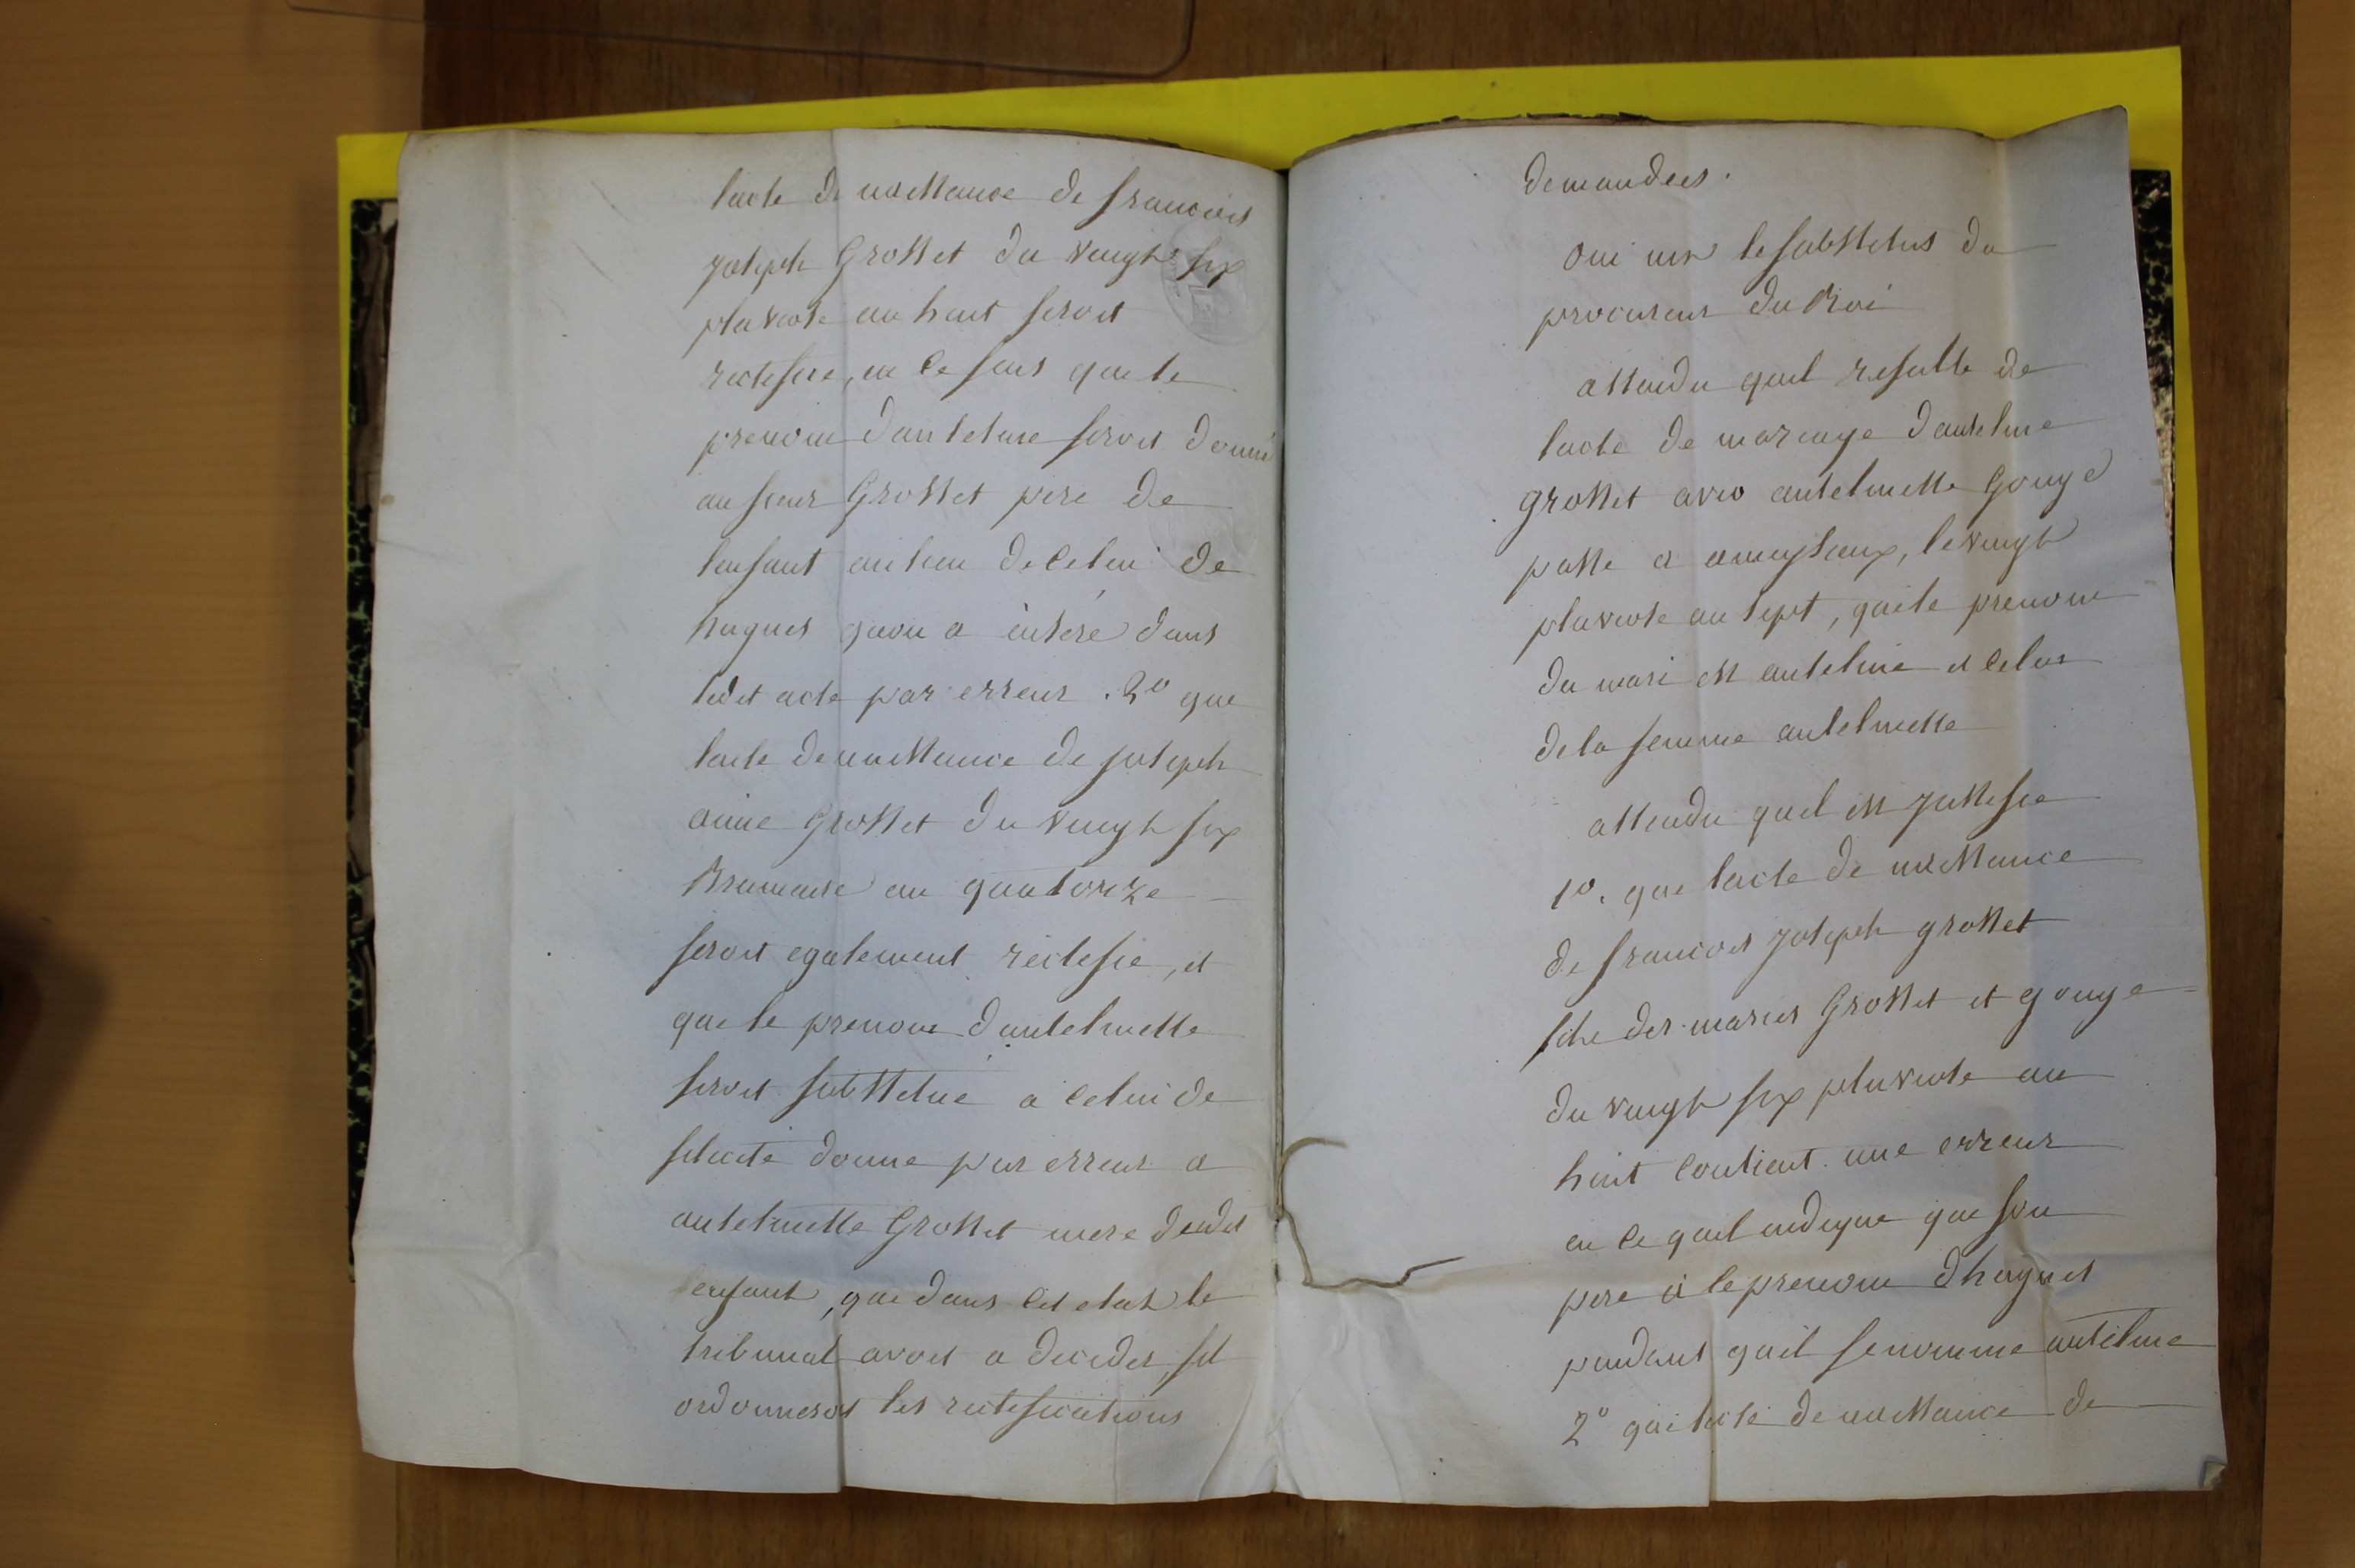 lacte de naissance de francois
joseph Grosset du vingt six
pluviose an huit seroit
rectifié, en ce sens que le
prenom d'antelme seroit donné
au sieur Grosset pere de
lenfant au lieu de celui de
hugues quon a inséré dans
ledit acte par erreur. 2º que
lacte de naissance de joseph
aimé Grosset du vingt six
Brumaire an quatorze
seroit egalement rectifié, et
que le prenom d'antelmette
seroit substitué a celui de
felicité donné par erreur a
antelmette Grosset mere dudit
enfant, que dans cet etat le
tribunal avoit a decider sil
ordonneroit les rectifications
demandées.
Oui mr le substitut du
procureur du Roi
attendu quil resulte de
lacte de mariage dantelme
grosset avec antelmette Gouge
passé a ameyzieux, le vingt
pluviose an sept, que le prenom
du mari est antelme et celui
de la femme antelmette
attendu quil est justifié
1º. que lacte de naissance
de francois joseph grosset
fils des mariés Grosset et gouge
du vingt six pluviose an
huit contient une erreur
en ce quil indique que son
pere a le prenom dhugues
pendant quil se nomme antelme
2º que lacte de naissance de